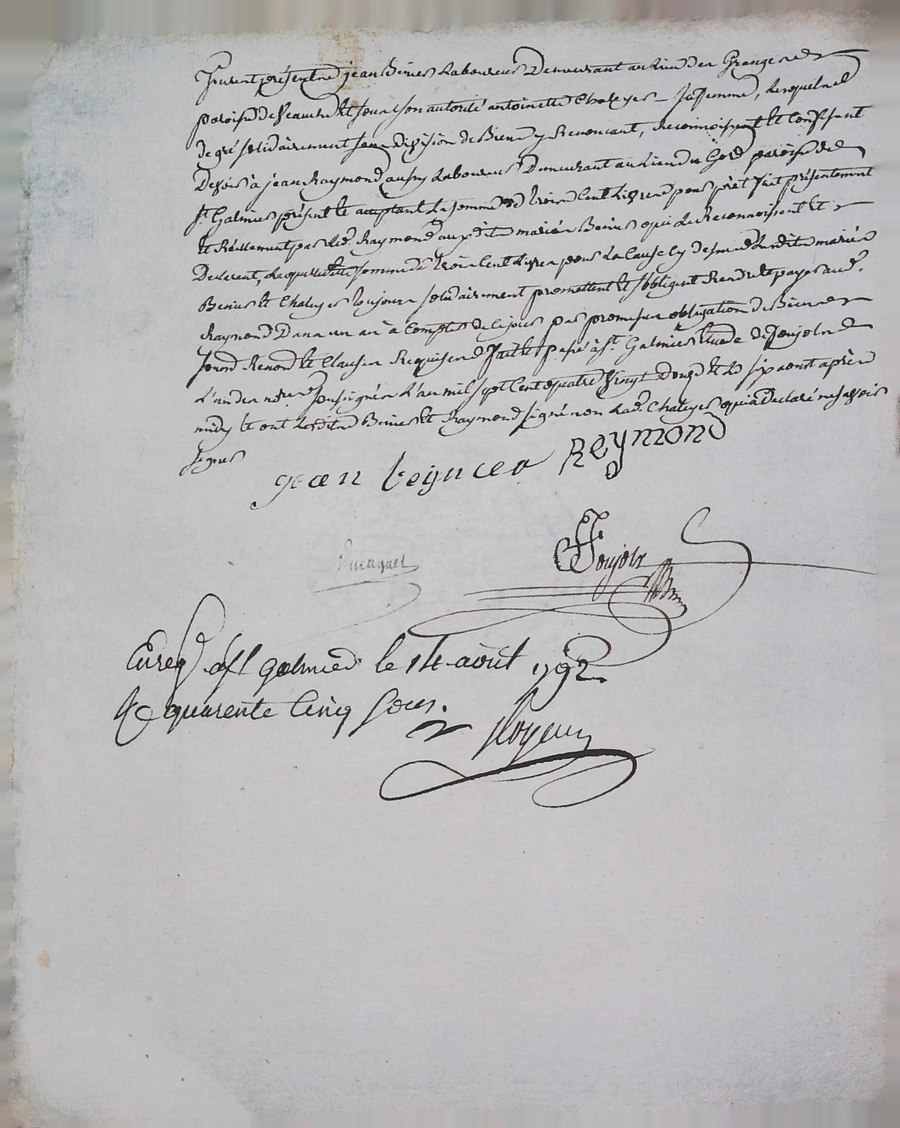 furent présents jean Benier Laboureur Demeurant au Lieu des Granges
paroisse de Veauche et sous son autorité antoinette Chaleyer sa femme, Lesquels
de gré solidairement sans division de Biens y Renonçant, Reconnoissent et Confessent
Devoir à jean Raymond aussy Laboureur Demeurant au Lieu du paroisse de
St. Galmier présent et acceptant La somme de trois Cent Livres pour prêt fait présentement
et Réellement par led. Raymond aux dits mariés Benier qui Le Reconnoissent et
Declarent, Laquelle somme de trois Cent Livres pour La Cause cy dessus Lesdits mariés
Benier et Chaleyer toujours solidairement promettent et s'obligent Rendre et payer aud.
Raymond Dans un an à Compter de ce jour par promesse obligation de Biens
Renond. et Clauses Requises fait et passé à St. Galmier Etude de
L'un des nores. soussignés L'an mil sept Cent quatre vingt Douze et Le six aoust après
midy et ont Lesdits Benier et Raymond signé non Lad. Chaleyer qui a déclaré ne savoir
signer
jean beynier Reymond
Enregé à St galmier le 14 août 1792
R quarente Cinq sous.